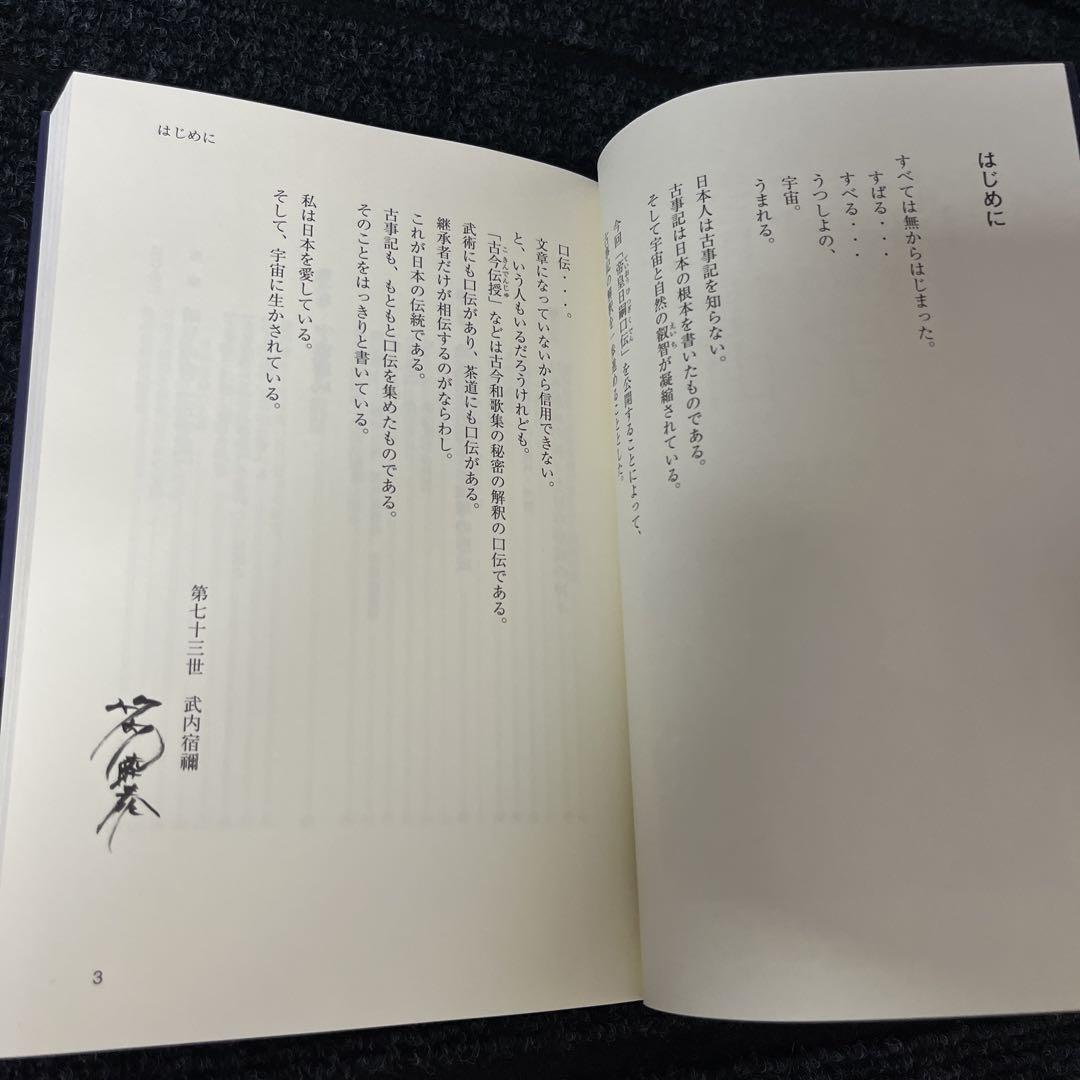 はじめに
すべては無からはじまった。
すばる・・・
すべる・・・
うつしよの、
宇宙。
うまれる。
日本人は古事記を知らない。
古事記は日本の根本を書いたものである。
そして宇宙と自然の叡智が凝縮されている。
えいち
今回「帝皇日嗣口伝」を公開することによって、
はじめに
口伝・・・。
文章になっていないから信用できない。
と、いう人もいるだろうけれども。
「古今伝授」などは古今和歌集の秘密の解釈の口伝である。
こきんでんじゅ
武術にも口伝があり、茶道にも口伝がある。
継承者だけが相伝するのがならわし。
これが日本の伝統である。
古事記も、もともと口伝を集めたものである。
そのことをはっきりと書いている。
私は日本を愛している。
そして、宇宙に生かされている。
第七十三世 武内宿禰
3